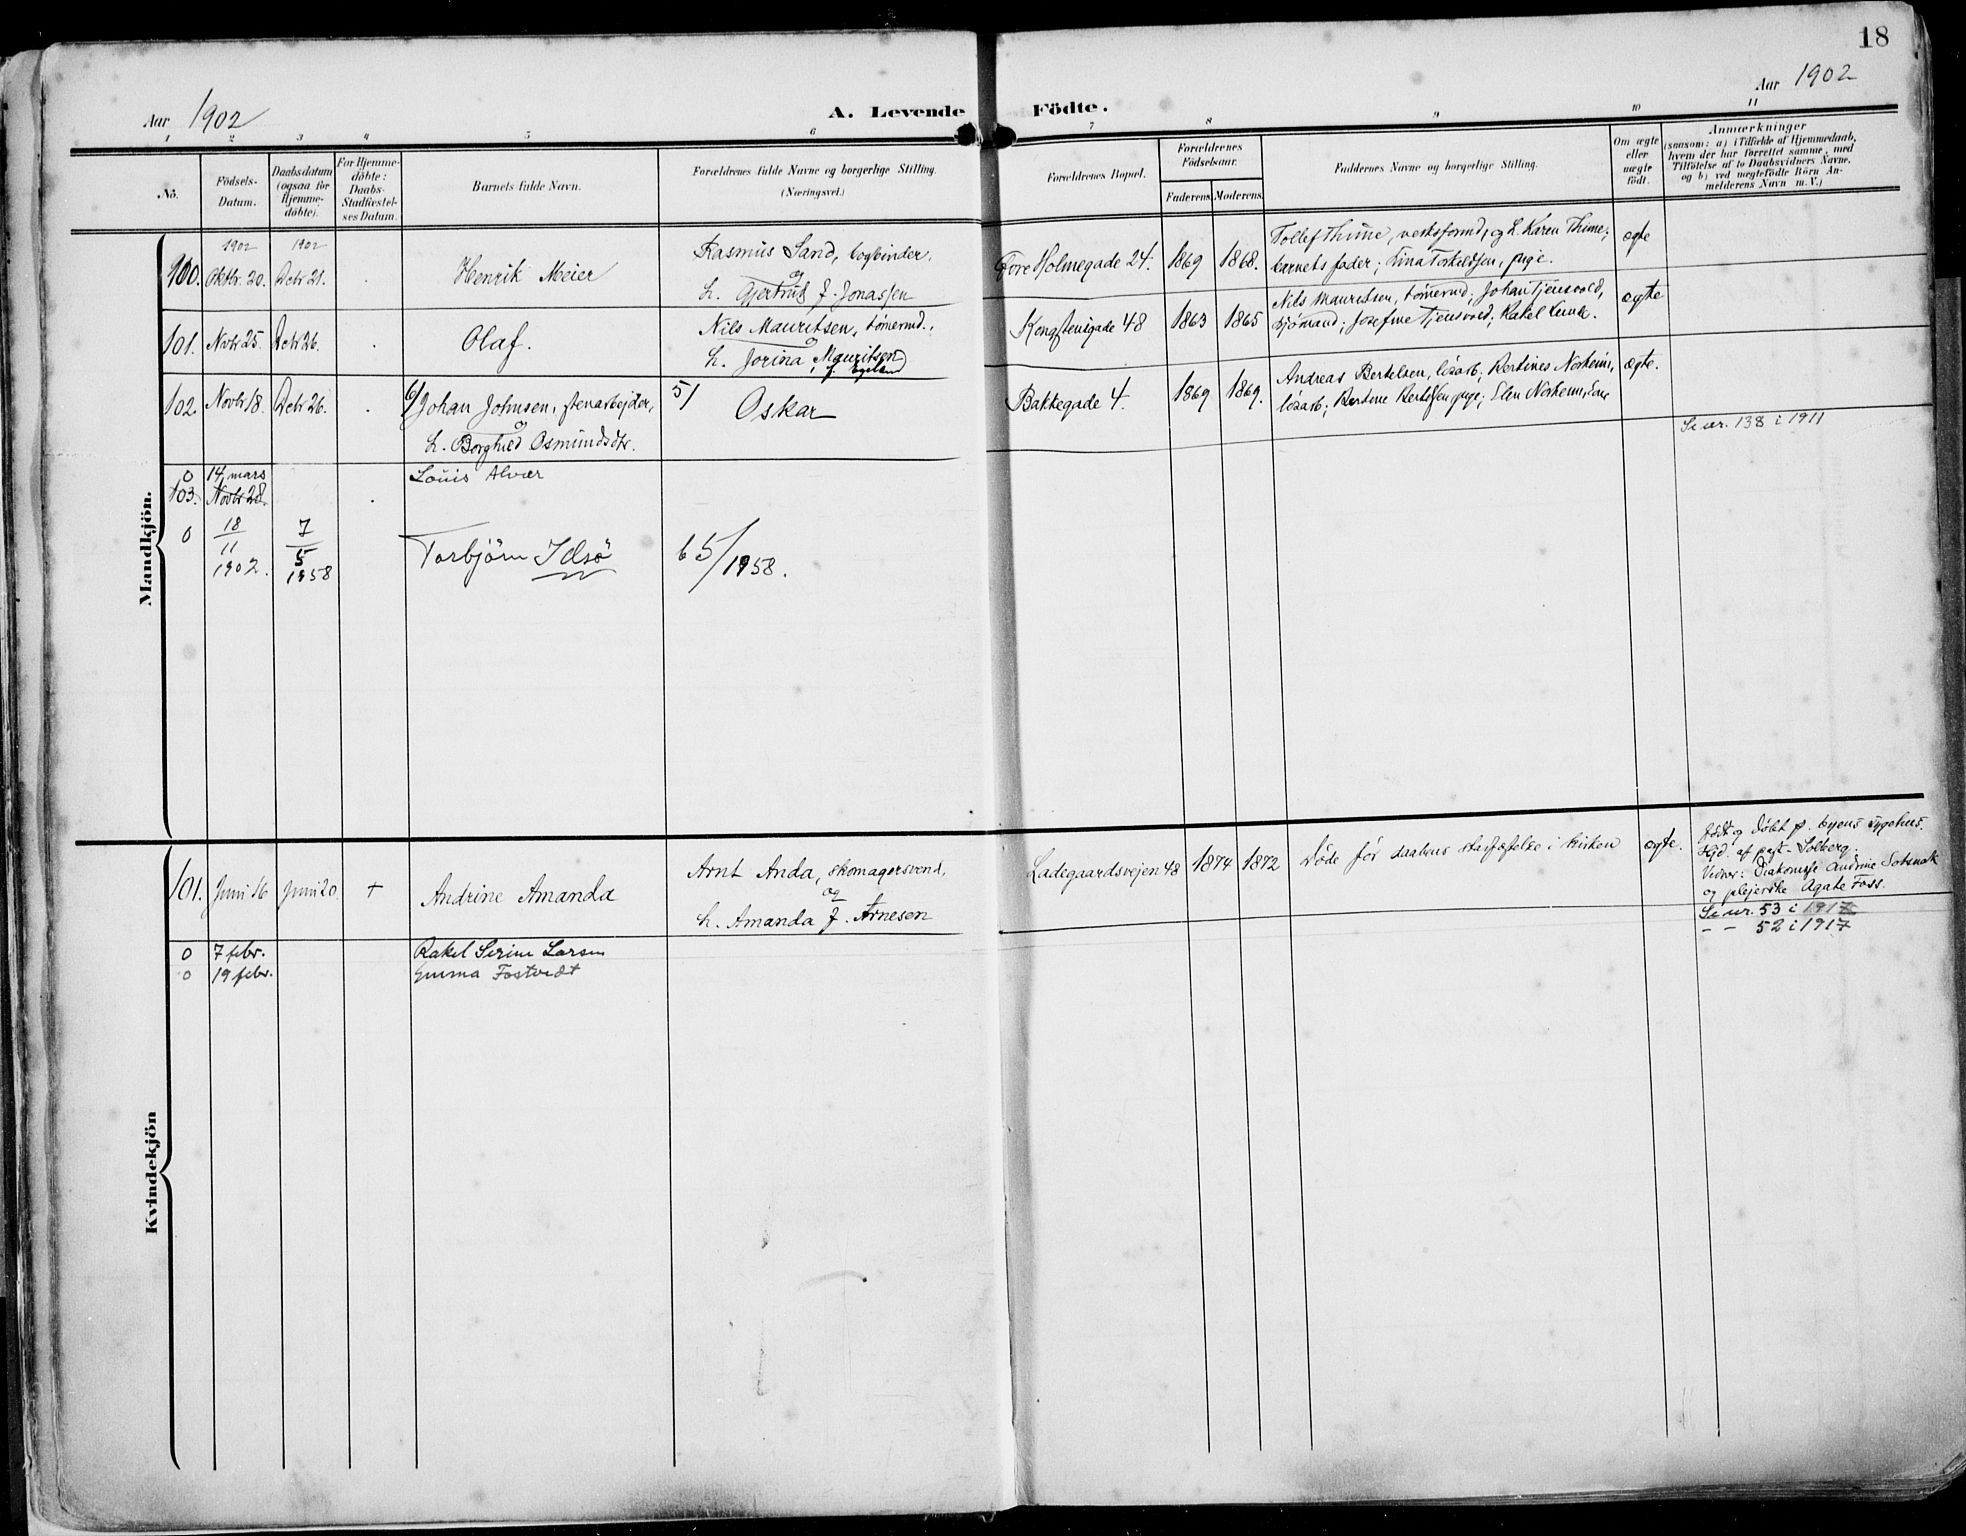 18
Aar 1902
A. Levende Födte.
Aar 1902
1 2 3 4 5 6 7 8 9 10 11
No.
Födsels-
Datum.
Daabsdatum
(ogsaa for
Hjemme-
döbte).
For Hjemme-
döbte:
Daabs-
Stadfæstel-
ses Datum.
Barnets fulde Navn.
Forældrenes fulde Navne og borgerlige Stilling.
(Næringsvei.)
Forældrenes Bopæl.
Forældrenes
Födselsaar.
Faderens. Moderens.
Faddernes Navne og borgerlige Stilling.
Om ægte
eller
uægte
födt.
Anmærkninger
(saasom: a) i Tilfælde af Hjemmedaab,
hvem der har forrettet samme, med
Tilföielse af to Daabsvidners Navne.
og b) ved uægtefödte Börn An-
melderens Navn m. V.)
Mandkjön.
1902 1902
100. Oktbr. 20. Decbr 21. Henrik Meier
Rasmus Sand, bogbinder,
og
h. Gjertrud f. Jonassen
Øvre Holmegade 24. 1869 1868.
Tollef Thime, verksformd, og h. Karen Thime;
barnets fader; Lina Torkeldsen, pige.
ægte
101. Novbr 25. Decbr 26. Olaf.
Nils Mauritsen, tømermd.,
og
h. Jorina Mauritsen
f. Egeland
Kongstensgade 48 1863 1865
Nils Mauritsen, tømermd; Johan Tjensvold,
sjømand; Josefine Tjensvold; Rakel
ægte
102. Novbr 18. Decbr 26.
6/ Johan Johnsen, stenarbejder,
og
h. Borghild Osmundsdtr.
5/ Oskar
Bakkegade 4. 1869 1869.
Andreas Bertelsen, løsarb; Bertines Norheim,
løsarb; Bertine Bertelsen pige; Elen Norheim,
ægte.
0 14 mars Louis Alvær
Se nr. 138 i 1911
103. Novbr 28
0 18/11 1902. 7/5 1958 Torbjörn Idsö 65/1958.
Kvindekjön
101. Juni 16 Juni 20. + Andrine Amanda
Arnt Anda, skomagersvend,
og
h. Amanda f. Arnesen
Ladegaardsvejen 48 1874 1872
Døde før daabens stadfæstelse i kirken
ægte.
født og døbt p. byens sygehus.
Hjd. af Solberg.
Vidner: Diakonisse Andrine
og plejerske Agate Foss.
0 7 febr. Rakel Serine Larsen
Se nr. 53 i 1917
0 19 febr. Emma Fostvedt
- - 52 i 1917